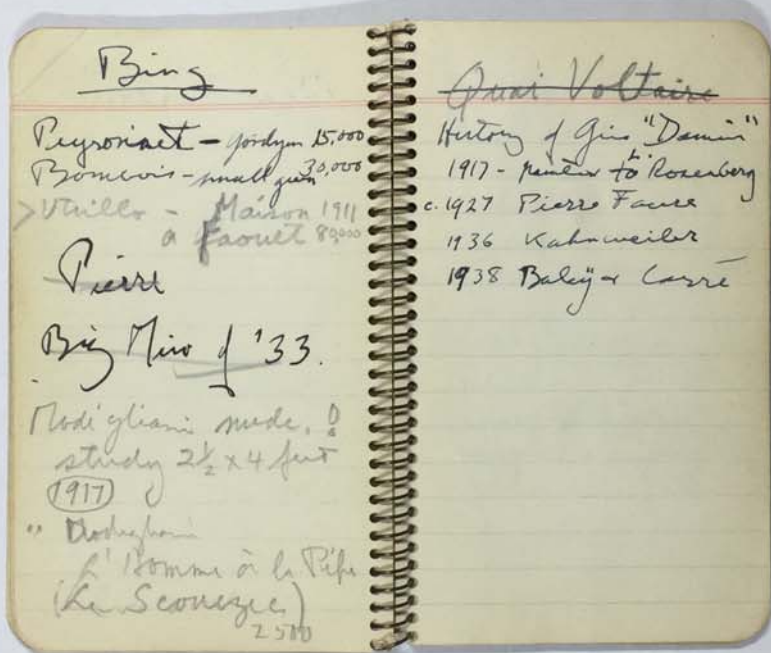 Bing
Peyronnet - 15,000
Bombois - small 30,000
> Utrillo - Maison 1911
a Faouet 80,000
Pierre
Big Miro of '33.
Modigliani nude, !
study 2 1/2 x 4 feet
1917
" Modigliani
L'Homme à la Pipe
(Le Scouezec)
2500
Quai Voltaire
History of Gris "Damier"
1917 - painter to L. Rosenberg
c. 1927 Pierre Faure
1936 Kahnweiler
1938 Balaÿ & Carré